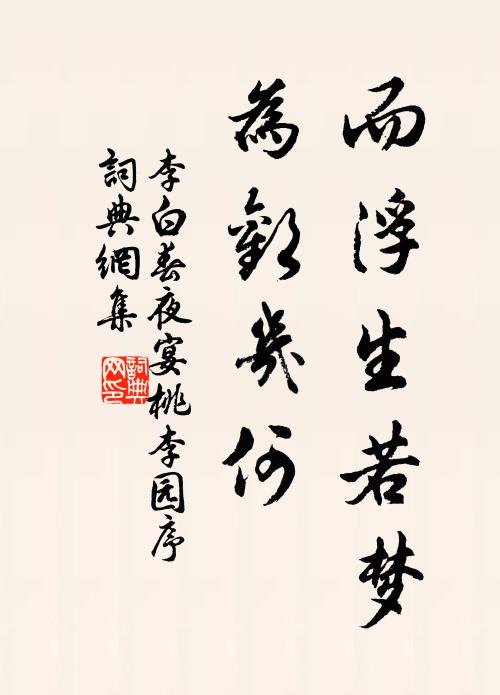 而浮生若梦
為歡幾何
李白春夜宴桃李园序
詞典網集
詞典網印